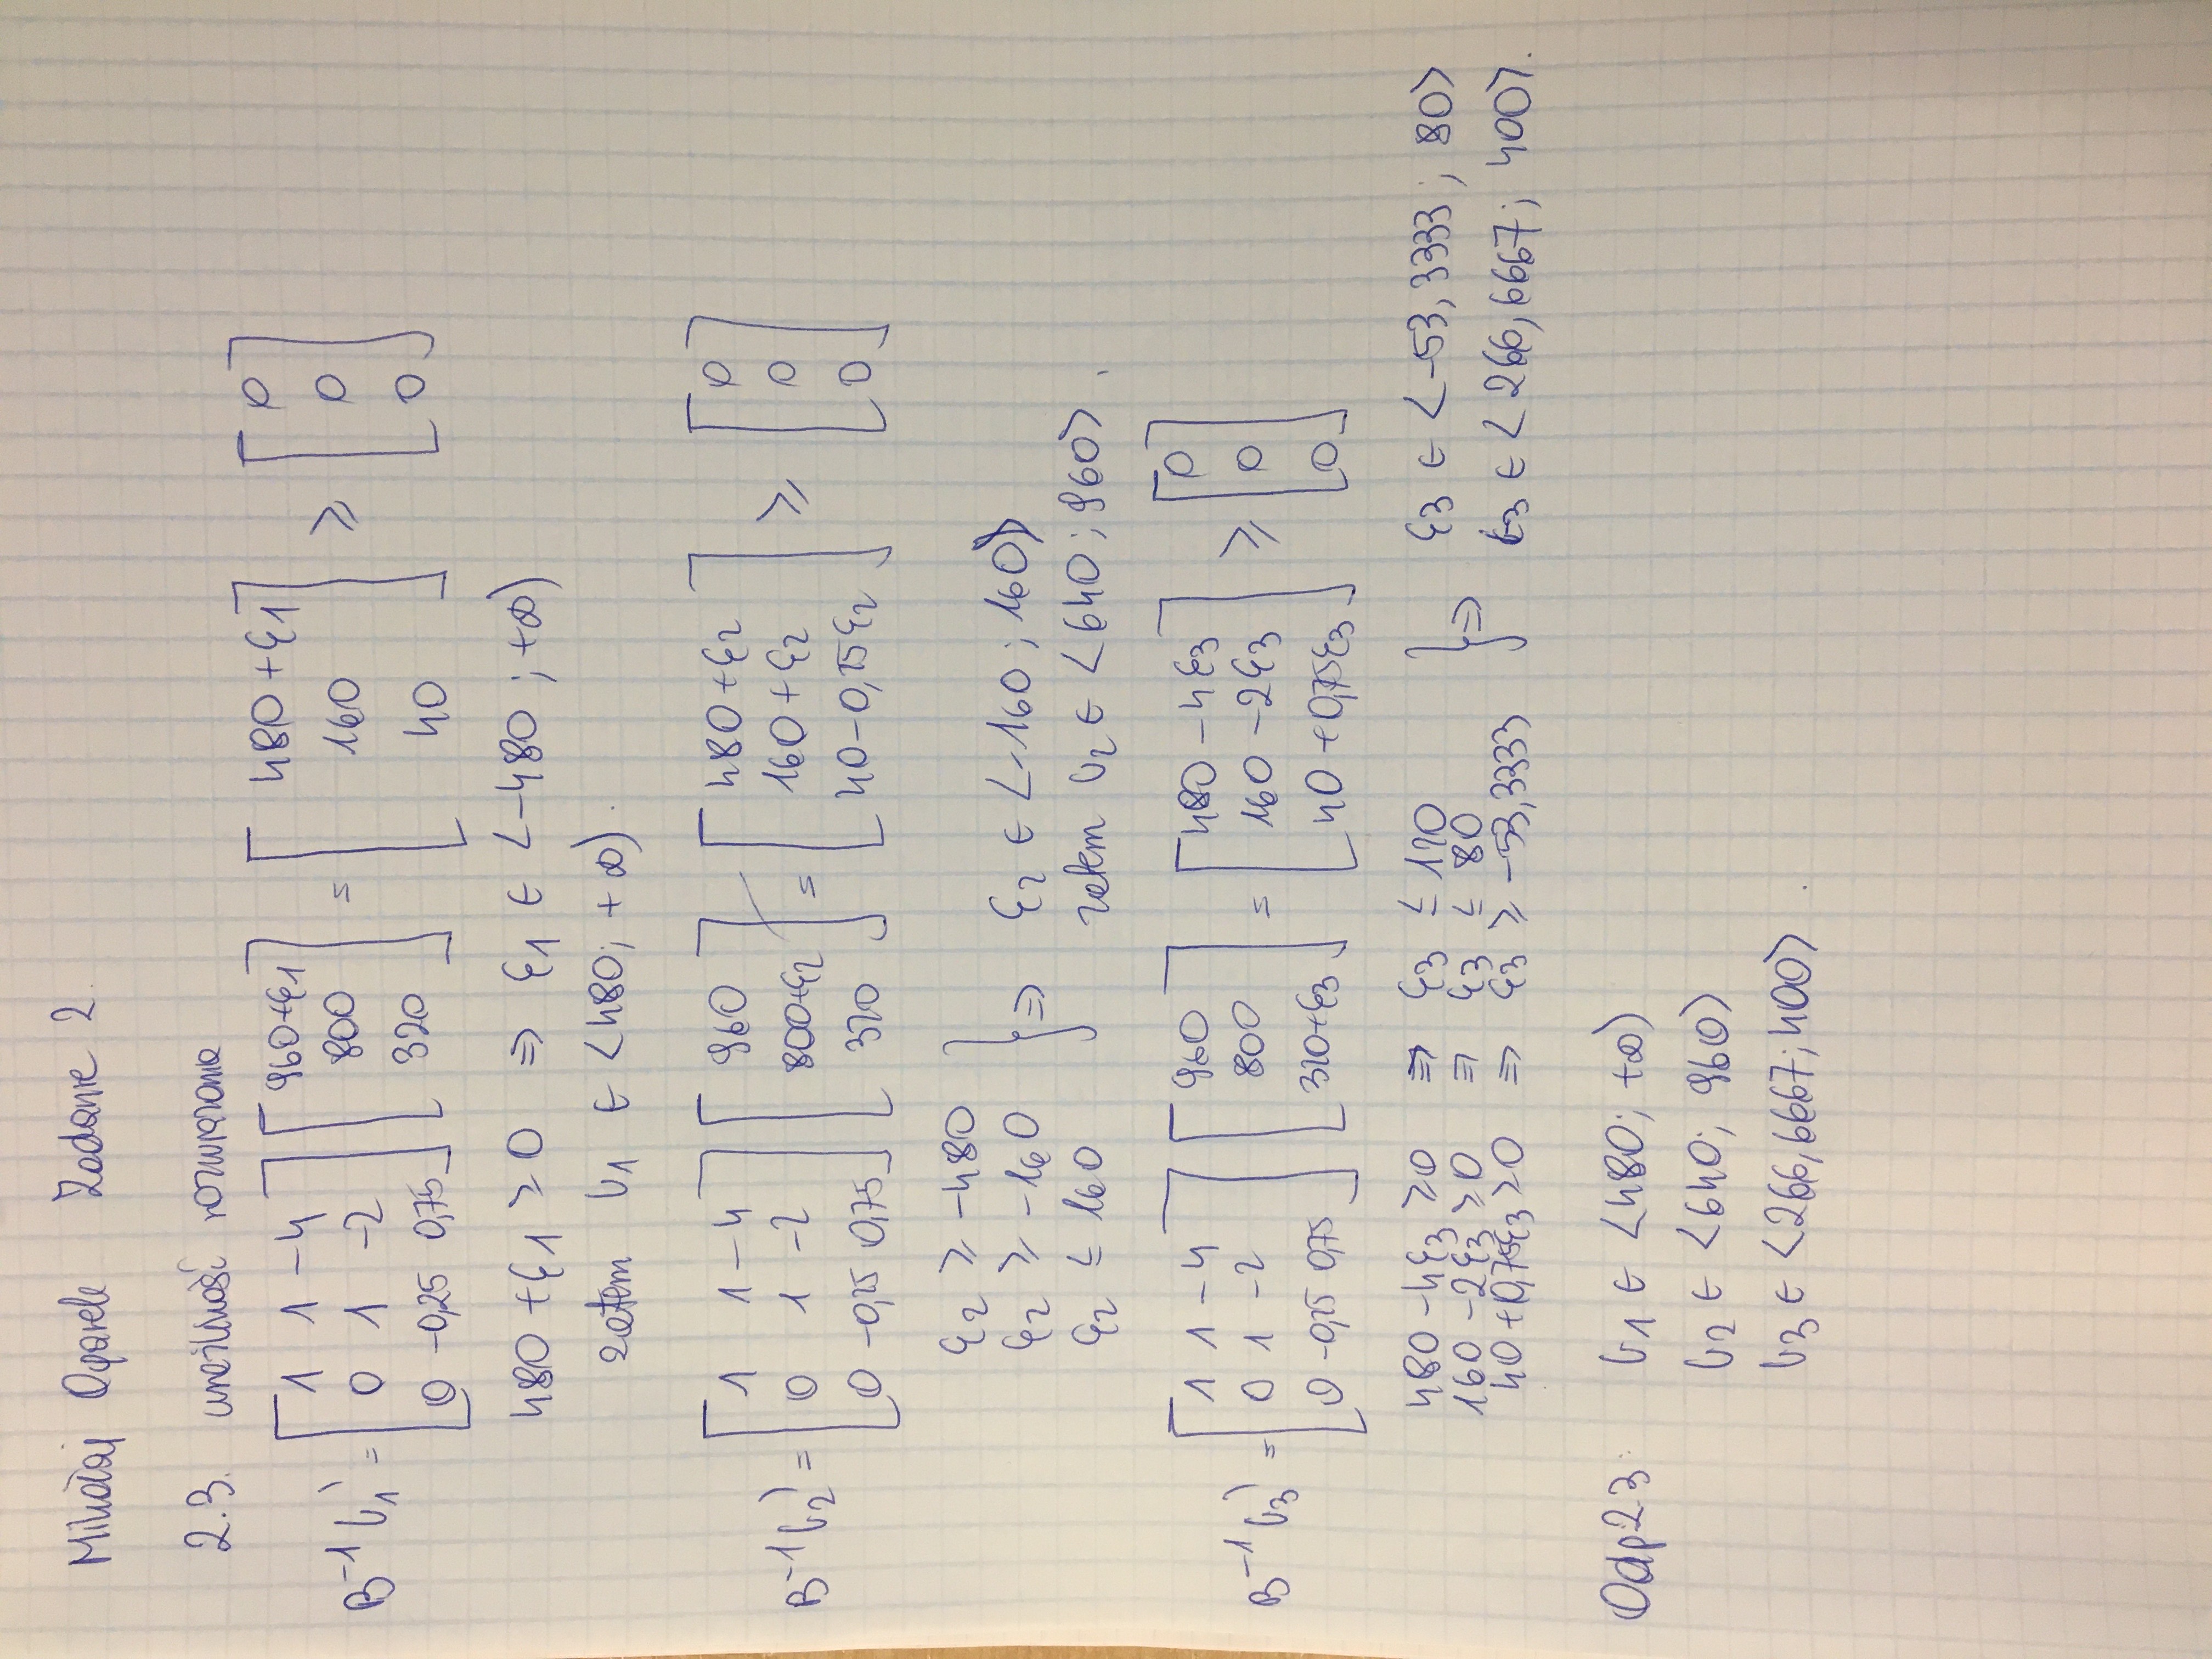 Mikołaj Oparele Zadanie 2.
2.3. wrażliwość rozwiązania
B⁻¹b₁' = [1 1 -4; 0 1 -2; 0 -0,25 0,75] [960+ε1; 800; 320] = [480+ε1; 160; 40] ≥ [0; 0; 0]
480+ε1 ≥ 0 ⇒ ε1 ∈ <-480 ; +∞)
zatem b1 ∈ <480; +∞).
B⁻¹b₂' = [1 1 -4; 0 1 -2; 0 -0,25 0,75] [960; 800+ε2; 320] = [480+ε2; 160+ε2; 40-0,25ε2] ≥ [0; 0; 0]
ε2 ≥ -480
ε2 ≥ -160 } ⇒ ε2 ∈ <-160 ; 160>
ε2 ≤ 160 zatem b2 ∈ <640 ; 960>.
B⁻¹b₃' = [1 1 -4; 0 1 -2; 0 -0,25 0,75] [960; 800; 320+ε3] = [480-4ε3; 160-2ε3; 40+0,75ε3] ≥ [0; 0; 0]
480-4ε3 ≥0 ⇒ ε3 ≤ 120
160-2ε3 ≥0 ⇒ ε3 ≤ 80 } ⇒ ε3 ∈ <-53,3333 ; 80>
40+0,75ε3 ≥0 ⇒ ε3 ≥ -53,3333 b3 ∈ <266,6667; 400>.
Odp 2.3: b1 ∈ <480; +∞)
b2 ∈ <640; 960>
b3 ∈ <266,6667; 400>.